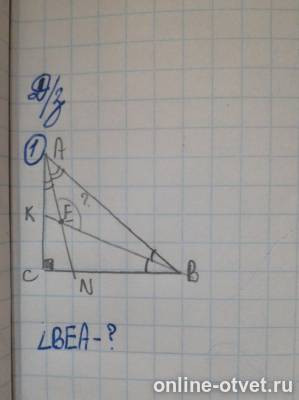 Д/з
1 A
?
K E
C N B
∠BEA-?
online-otvet.ru